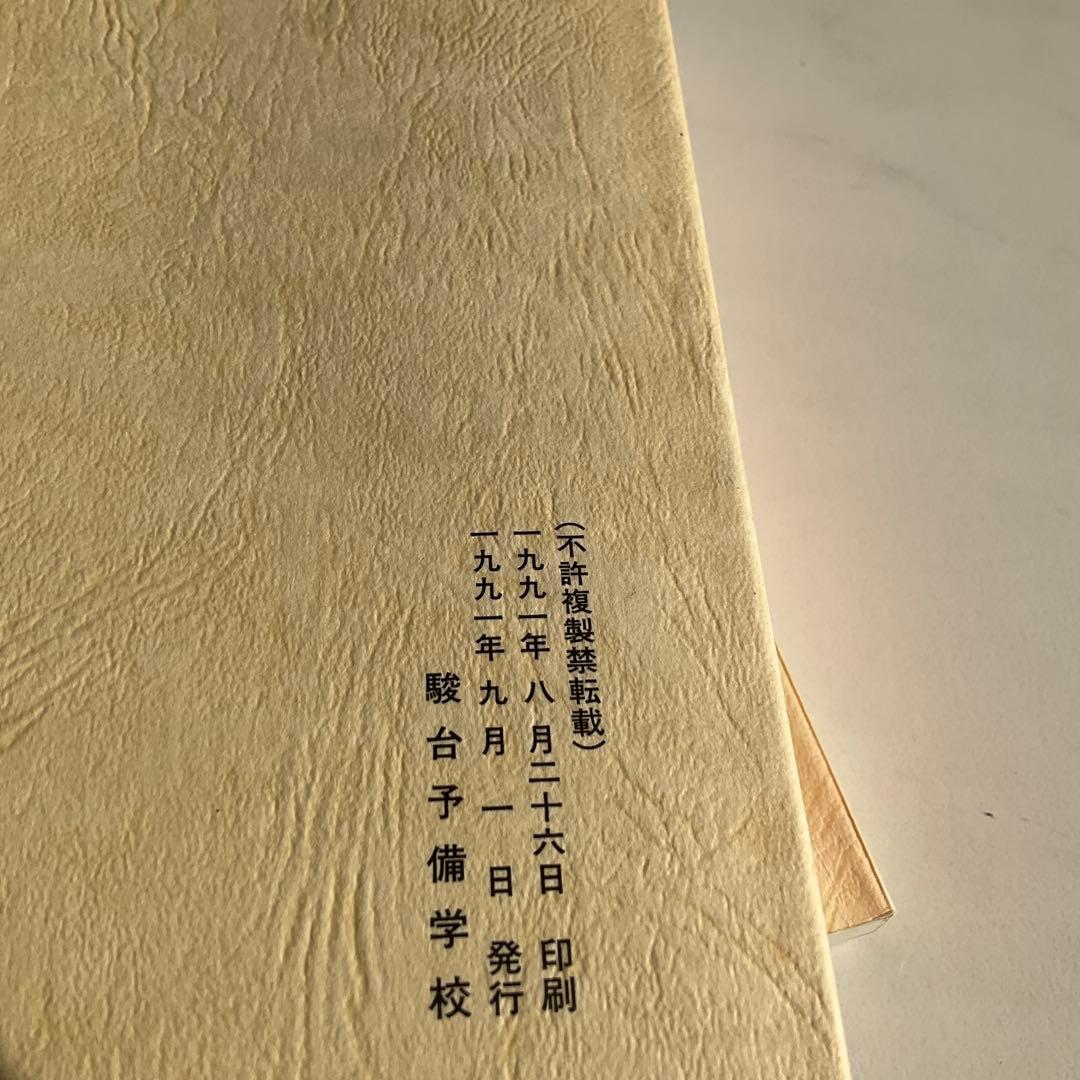 （不許複製禁転載）
一九九一年八月二十六日 印刷
一九九一年九月一日 発行
駿台予備学校